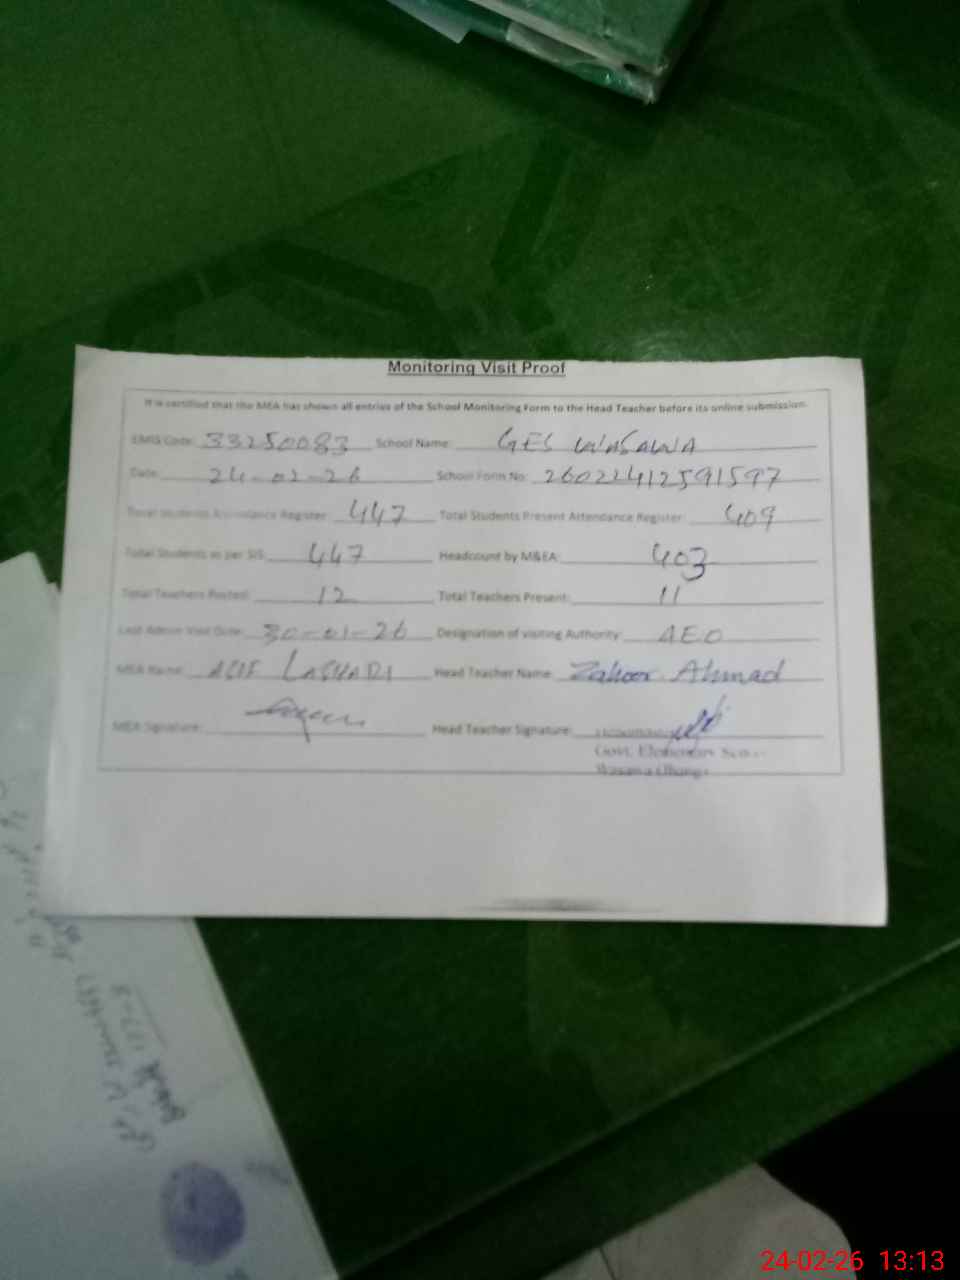 Monitoring Visit Proof
It is certified that the MEA has shown all entries of the School Monitoring Form to the Head Teacher before its online submission.
EMIS Code: 33250083 School Name: GES WASAWA
Date: 24-02-26 School Form No: 26022412591597
Total Students Attendance Register: 447 Total Students Present Attendance Register: 409
Total Students as per SIS: 447 Headcount by M&EA: 403
Total Teachers Posted: 12 Total Teachers Present: 11
Last Admin Visit Date: 30-01-26 Designation of visiting Authority: AEO
MEA Name: LAGHARI Head Teacher Name: Zahoor Ahmad
MEA Signature: Head Teacher Signature:
Govt. Elementary
Wasawa
24-02-26 13:13